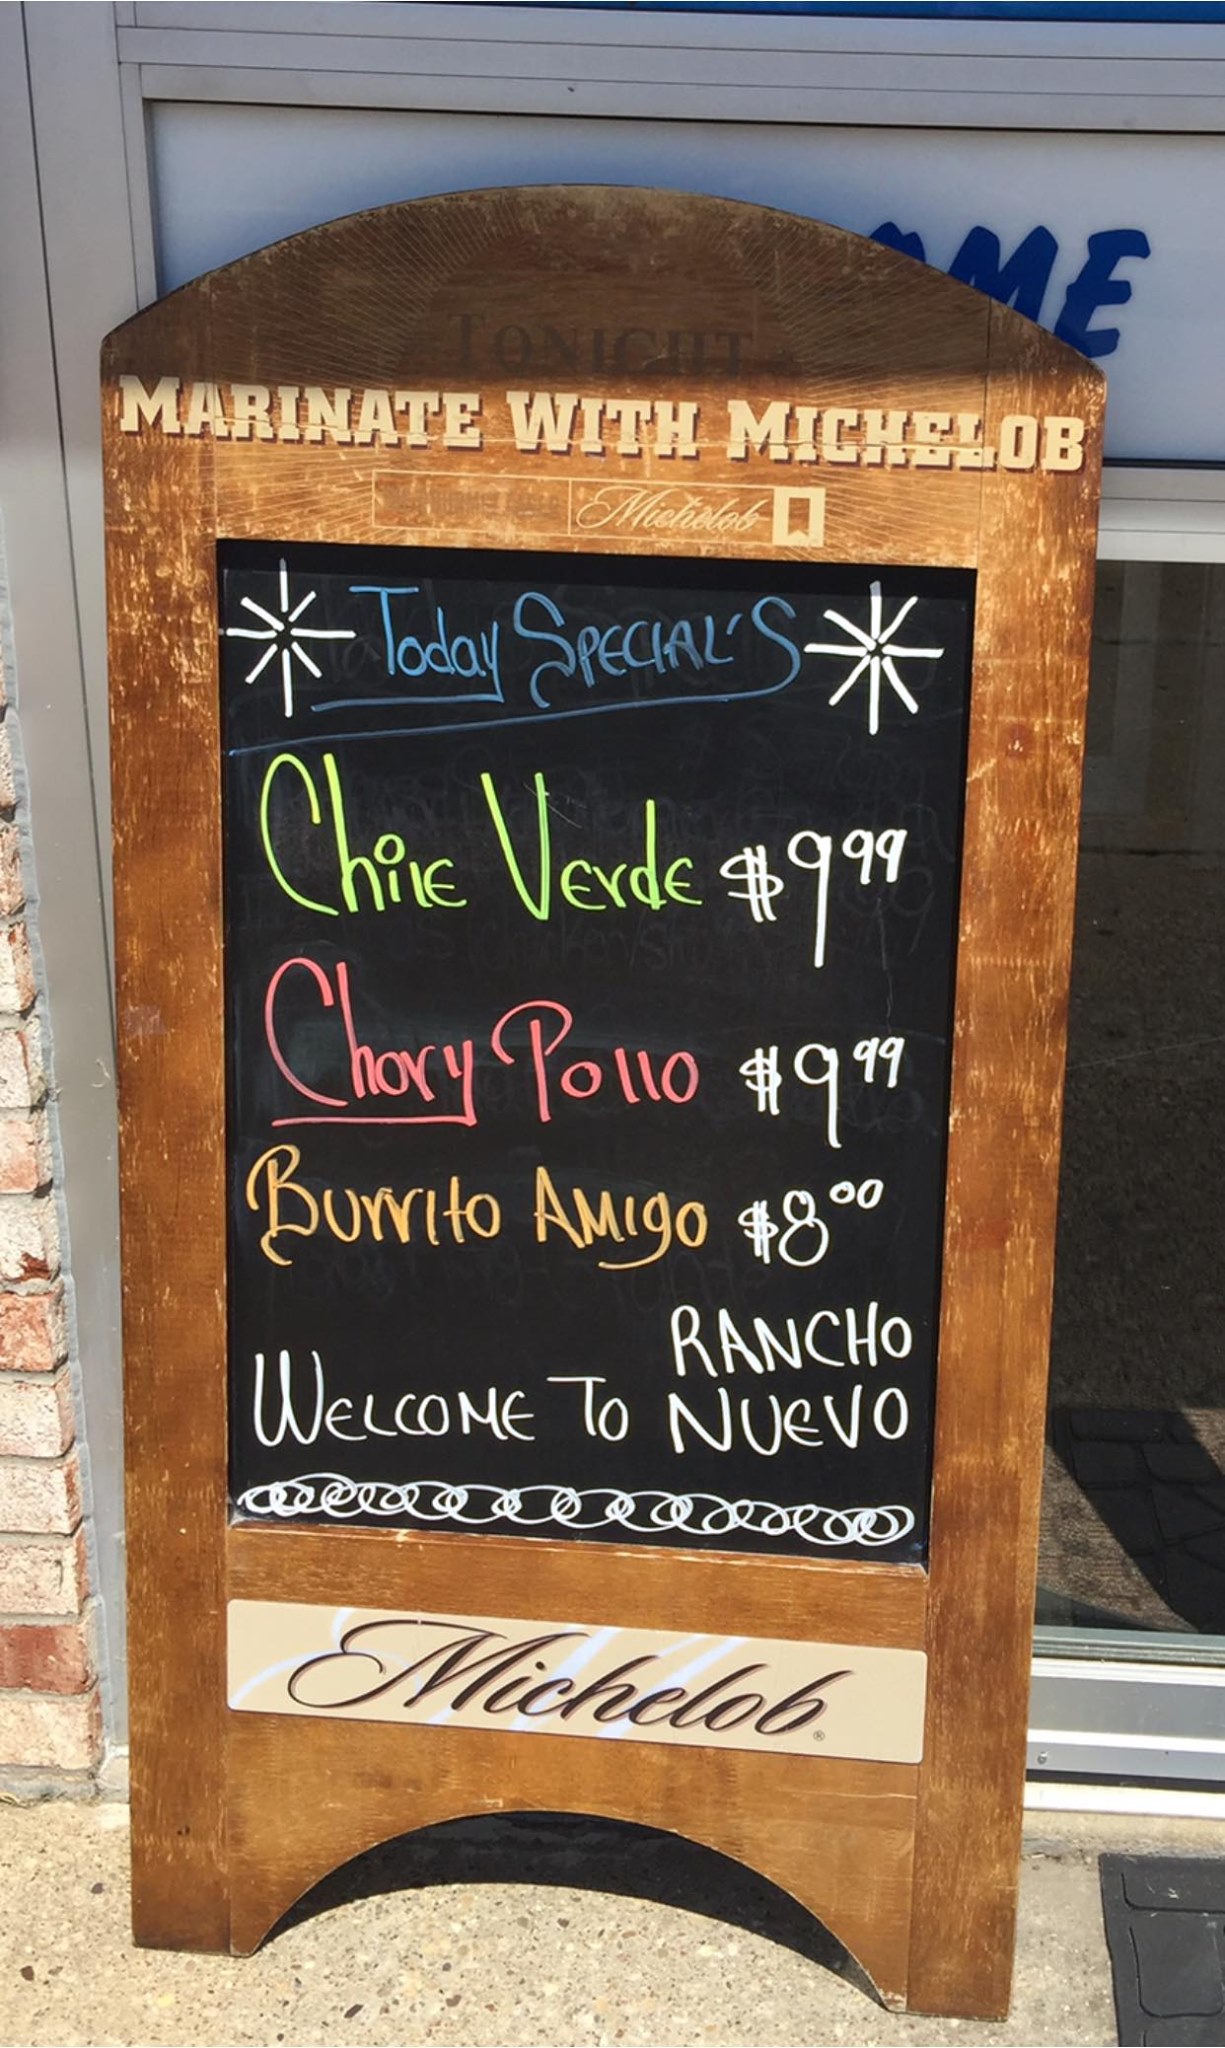 OME
TONIGHT
MARINATE WITH MICHELOB
Michelob
Today SPECIAL'S
Chile Verde $9.99
Chory Pollo $9.99
Burrito Amigo $8.00
RANCHO
WELCOME TO NUEVO
Michelob®